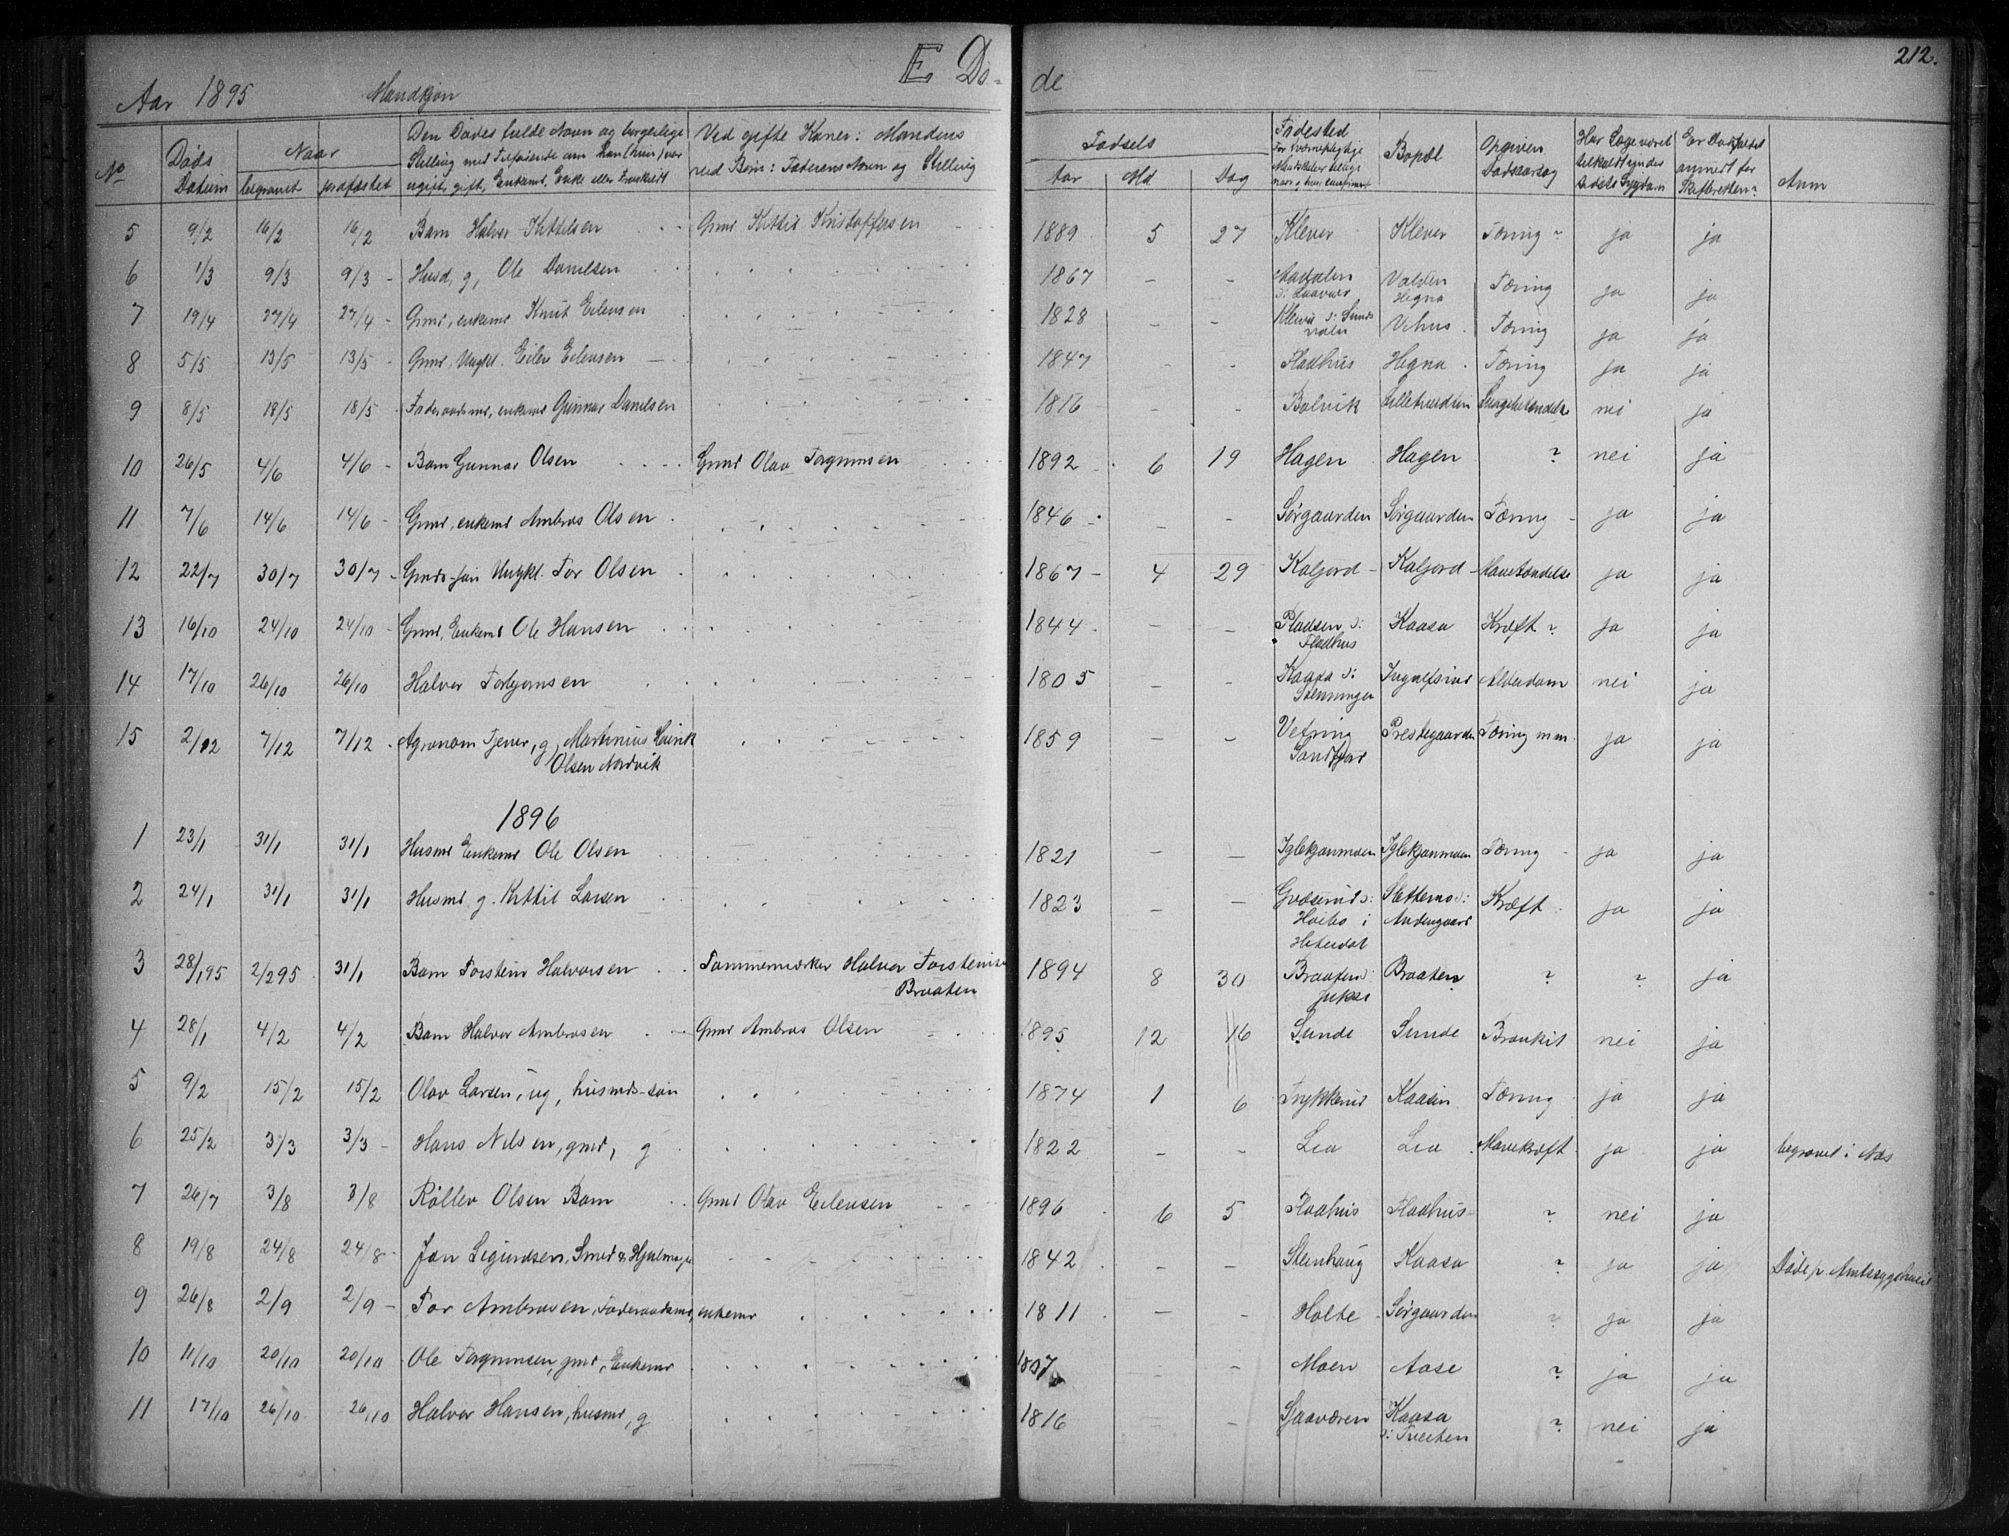 212.
E Dö- de
Aar 1895 Mandkjøn
No Døds Datum Naar begravet jordfæstet Den Dødes fulde Navn og borgerlige Stilling med Tilføiende om han (hun) var ugift, gift, Enkemd, Enke eller fraskilt Ved gifte Koner: Mandens ved Børn: Faderens Navn og Stilling Fødsels Aar Md Dag Fødested Bopæl Opgiven Dødsaarsag Har Læge været tilkaldt under sidste Sygdom Er Dødsfaldet anmeldt for Skifteretten? Anm
5 9/2 16/2 16/2 Barn Halvor Kittilsen Gmd Kittil Kristoffersen 1889 5 27 Klever Klever Tæring ? ja ja
6 1/3 9/3 9/3 - Husd, g, Ole Danilsen 1867 - - Valden Hegna Tæring ja ja
7 19/4 27/4 27/4 - Gmd, enkemd Knut Eilensen 1828 - - Vehus Tæring ja ja
8 5/5 13/5 13/5 - Gmd, Ungkl. Eilev Eilevsen 1847 - - Fladhus Hegna Tæring ja ja
9 8/5 18/5 18/5 - Føderaadsmd, enkemd Gunnar Danilsen 1816 - - Bolvik Lungebetændelse nei ja
10 26/5 4/6 4/6 - Barn Gunnar Olsen Gmd Olav Torgrimsen 1892 6 19 Hagen Hagen ? nei ja
11 7/6 14/6 14/6 - Gmd, enkemd Ambros Olsen 1846 - - Sørgaarden Sørgaarden Tæring ja ja
12 22/7 30/7 30/7 - Gmds-søn Ungkl. Tor Olsen 1867 - 4 29 Kaljord Kaljord Mavebetændelse ja ja
13 16/10 24/10 24/10 - Gmd, Enkemd Ole Hansen 1844 - - Pladsen d: Fladhus Kaasa Kræft ? ja ja
14 17/10 26/10 26/10 Halvor Torbjørnsen 1805 - - Kaasa d: Ingulfsrud Alderdom nei ja
15 2/12 7/12 7/12 - Agronom Tjener, g, Martinius Laurik Olsen Nordvik 1859 - - Vefring Søndfjord Prestegaarden Tæring m.m. ja ja
1896
1 23/1 31/1 31/1 Husmd Enkemd Ole Olsen 1821 - - Iglekjønmoen Iglekjønmoen Tæring ja ja
2 24/1 31/1 31/1 Husmd. g. Kittil Larsen 1823 - - Høibø i Hiterdal Slettemo d: Andengaard Kræft ja ja
3 28/1 95 2/2 95 31/1 Barn Torstein Halvorsen Tømmermærker Halvor Torstensen Braaten 1894 8 30 Braaten d: Braaten ? ? ja
4 28/1 4/2 4/2 Barn Halvor Ambrosen Gmd Ambros Olsen 1895 12 16 Sunde Sunde Bronkit nei ja
5 9/2 15/2 15/2 Olav Larsen, ug, husmds-søn 1874 1 6 Trykkerud Kaasin Tæring ja ja
6 25/2 3/3 3/3 - Hans Nilsen, gmd, g 1822 - - Lia Lia Mavekræft ja ja begravet i Næs
7 26/7 3/8 3/8 Røllev Olsen Barn Gmd Olav Eilevsen 1896 6 5 Fladhus Fladhus ? nei ja
8 19/8 24/8 24/8 - Jon Sigurdsen, Smed & Hjulmager 1842 - - Stenhaug Kaasa ? ja ja Døde p. Amtssygehuset
9 26/8 2/9 2/9 - Tor Ambrosen, Føderaadsmd, enkemd 1811 - - Holte Sørgaarden ? ja ja
10 11/10 20/10 20/10 Ole Torgrimsen, gmd, Enkemd 1807 - Moen Aase ? ja ja
11 17/10 26/10 26/10 Halvor Hansen, husmd, g 1816 - Sjaaværen Kaasa d: Tveiten ? nei ja